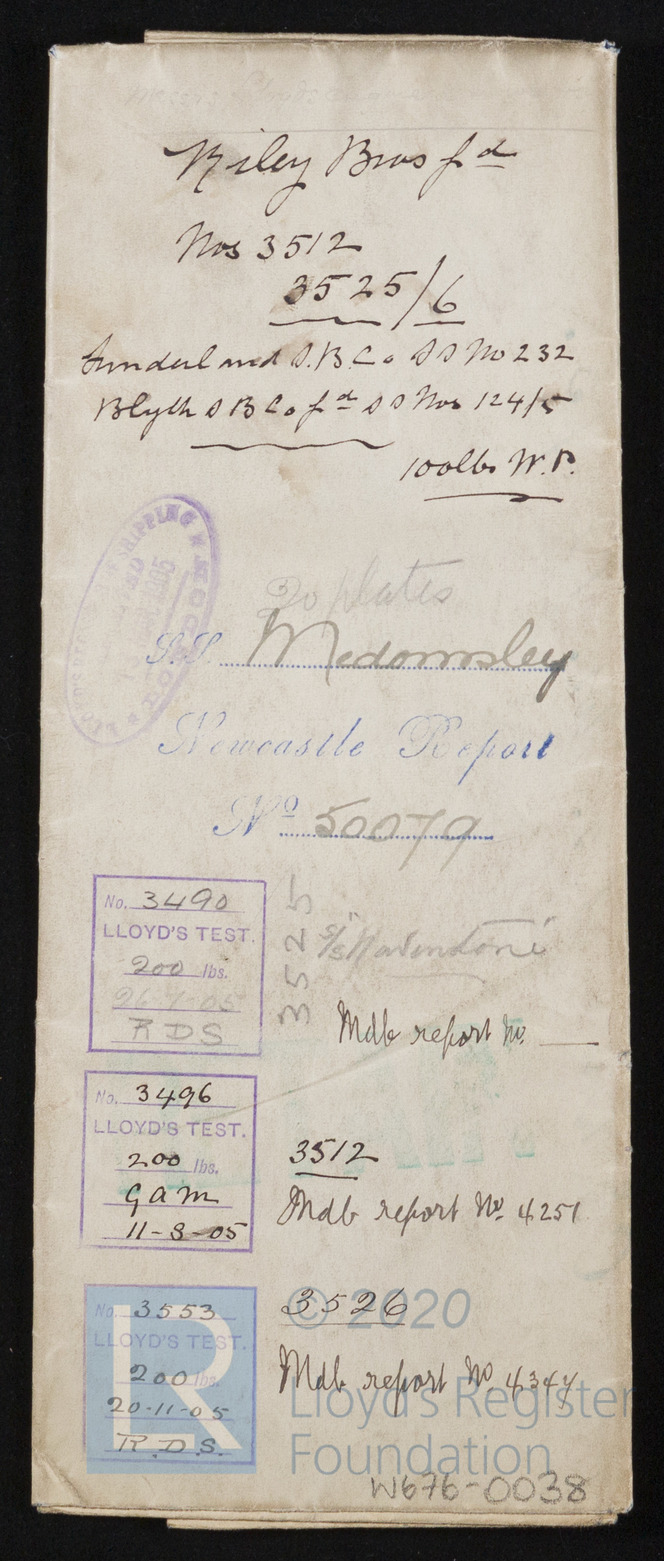 Riley Bros Ld
Nos 3512
3525/6
Sunderland S.B.Co SS No 232
Blyth S B Co Ld SS Nos 124/5
100lbs W.P.
20 plates
S.S. Medomsley
Newcastle Report
No 50079
No. 3490
LLOYD'S TEST.
200 lbs.
26-7-05
RDS
3525
Mdb report No.
No. 3496
LLOYD'S TEST.
200 lbs.
GAM
11-8-05
3512
Mdb report No. 4251
No. 3553
LLOYD'S TEST.
200 lbs.
20-11-05
R.D.S.
3526
Mdb report No 4347
© 2020
Lloyd's Register
Foundation
W676-0038